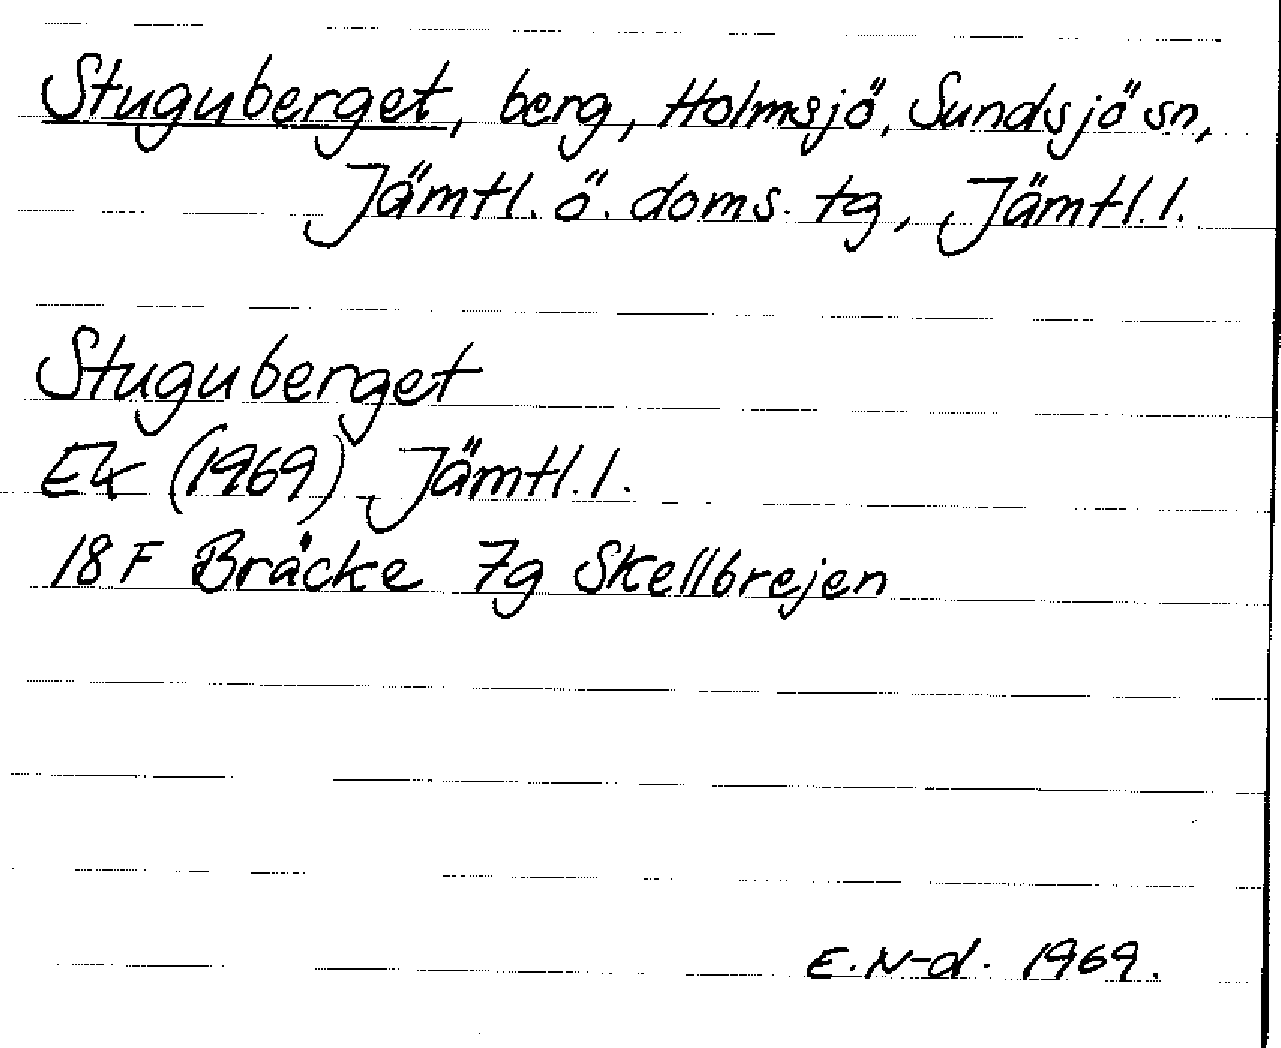 Stuguberget, berg, Holmsjö, Sundsjö sn,
Jämtl. ö. doms. tg, Jämtl. l.
Stuguberget
Ek (1969) Jämtl. l.
18 F Bräcke 7g Skellbrejen
E. N-d. 1969.